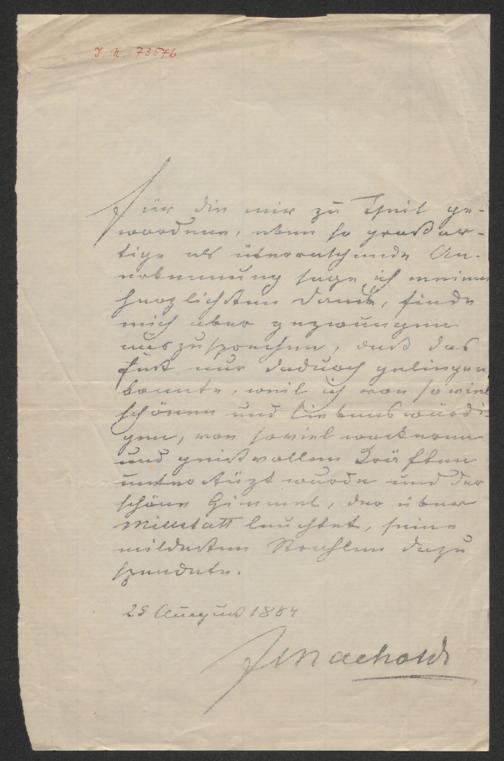 I. N. 73576
Für die mir zu Theil ge-
wordene, eben so großar-
tige als überraschende An-
erkennung sage ich meinen
herzlichsten Dank, finde
mich aber gezwungen
auszusprechen, daß das
Fest nur dadurch gelingen
konnte, weil ich von soviel
schönen und liebenswürdi-
gen, von soviel wackeren
und geistvollen Kräften
unterstützt wurde und der
schöne Himmel, der über
Millstatt leuchtet, seine
mildesten Strahlen dazu
spendete.
25 August 1884